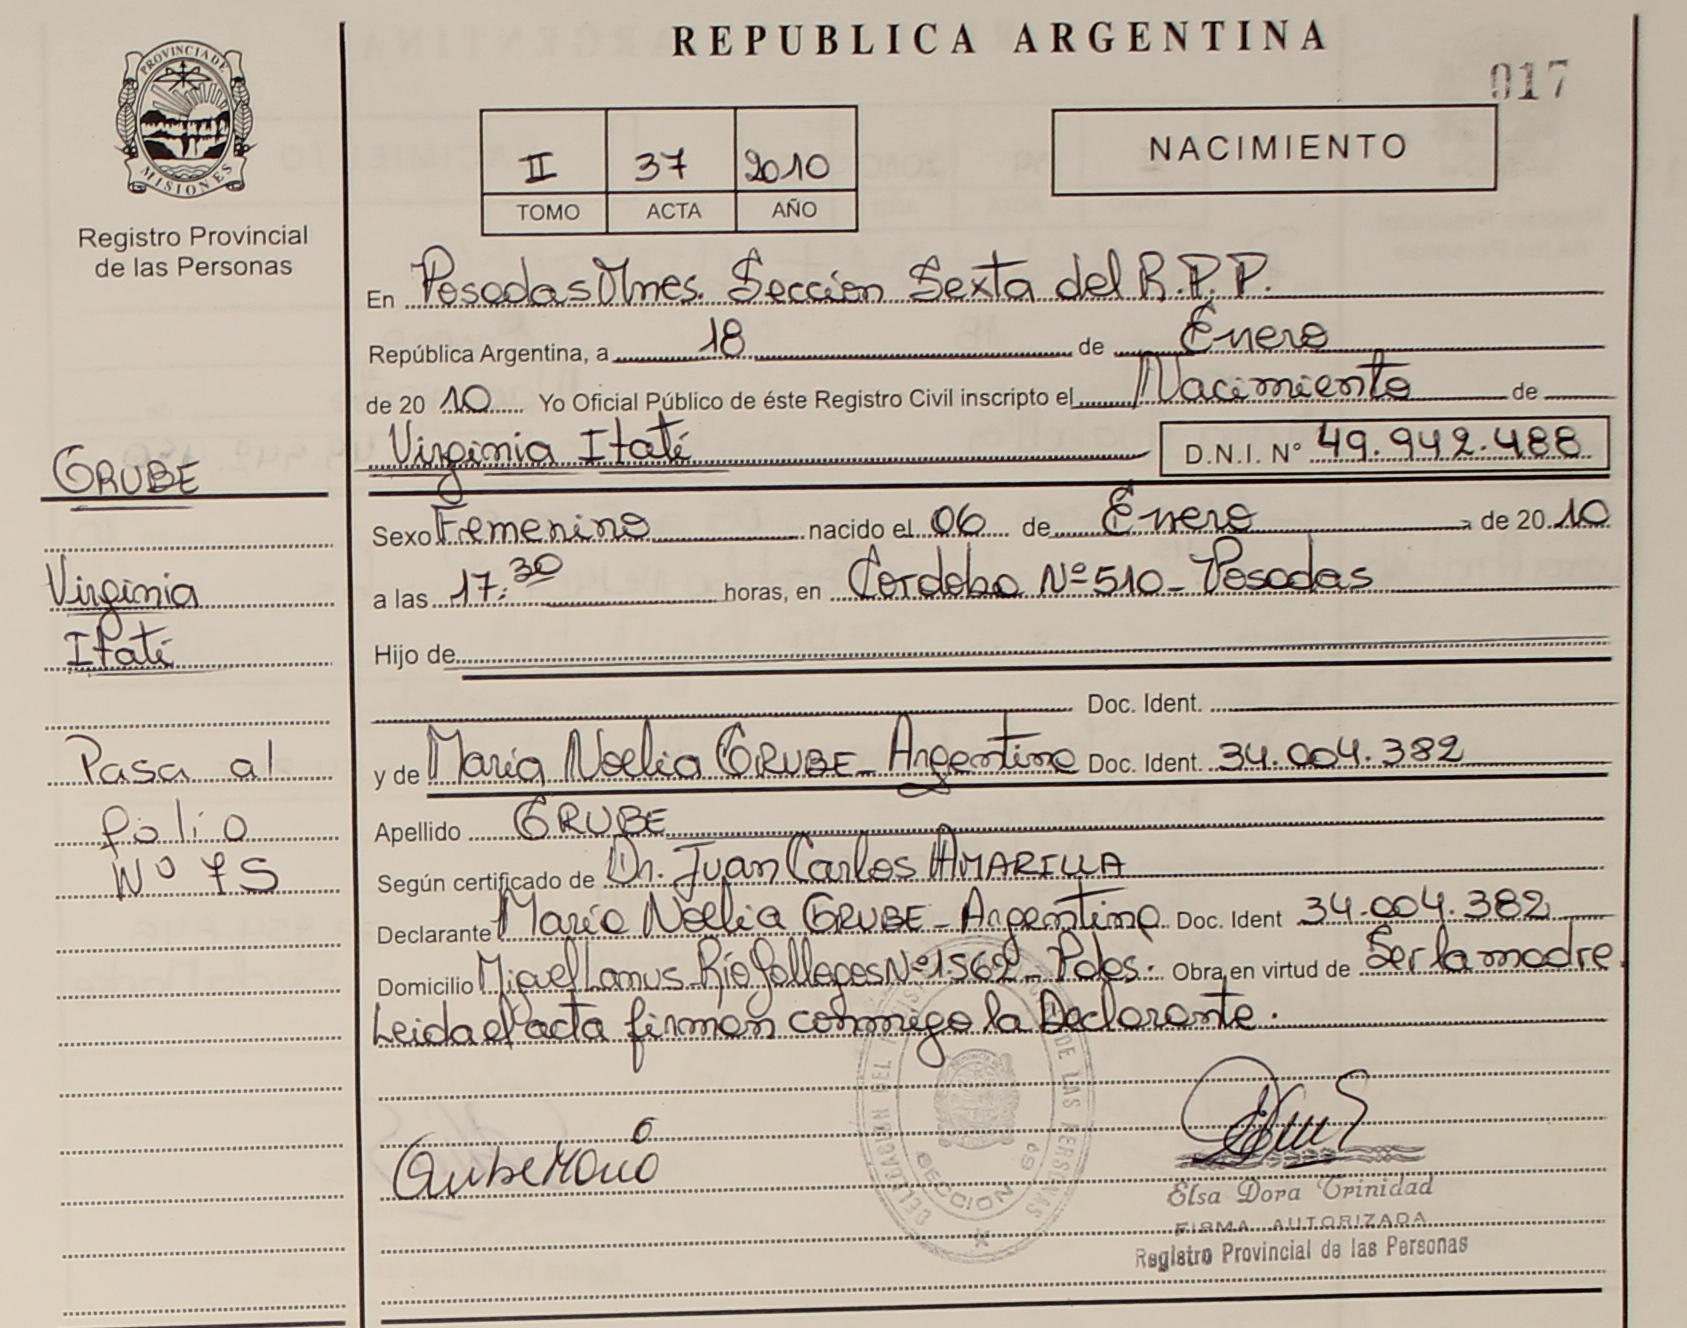 REPUBLICA ARGENTINA
017
PROVINCIA DE
MISIONES
Registro Provincial
de las Personas
II 37 2010
TOMO ACTA AÑO
NACIMIENTO
En Posadas Mnes. Sección Sexta del R.P.P.
República Argentina, a 18 de Enero
de 20 10 Yo Oficial Público de éste Registro Civil inscripto el Nacimiento de
Virginia Itatí D.N.I. N° 49.942.488
GRUBE
Sexo Femenino nacido el 06 de Enero de 20 10
a las 17:30 horas, en Cordoba Nº 510 - Posadas
Virginia
Itatí
Hijo de
Doc. Ident.
Pasa al
folio
Nº 75
y de María Noelia GRUBE - Argentina Doc. Ident. 34.004.382
Apellido GRUBE
Según certificado de Dr. Juan Carlos AMARILLA
Declarante María Noelia GRUBE - Argentina Doc. Ident 34.004.382
Domicilio Miguel Lanus - Río Gallegos Nº 1.562 - Pdas. Obra en virtud de Ser la madre.
Leida el acta firman conmigo la Declarante.
DE LAS PERSONAS
SECCION 6ª
Grube María
Elsa Dora Trinidad
FIRMA AUTORIZADA
Registro Provincial de las Personas